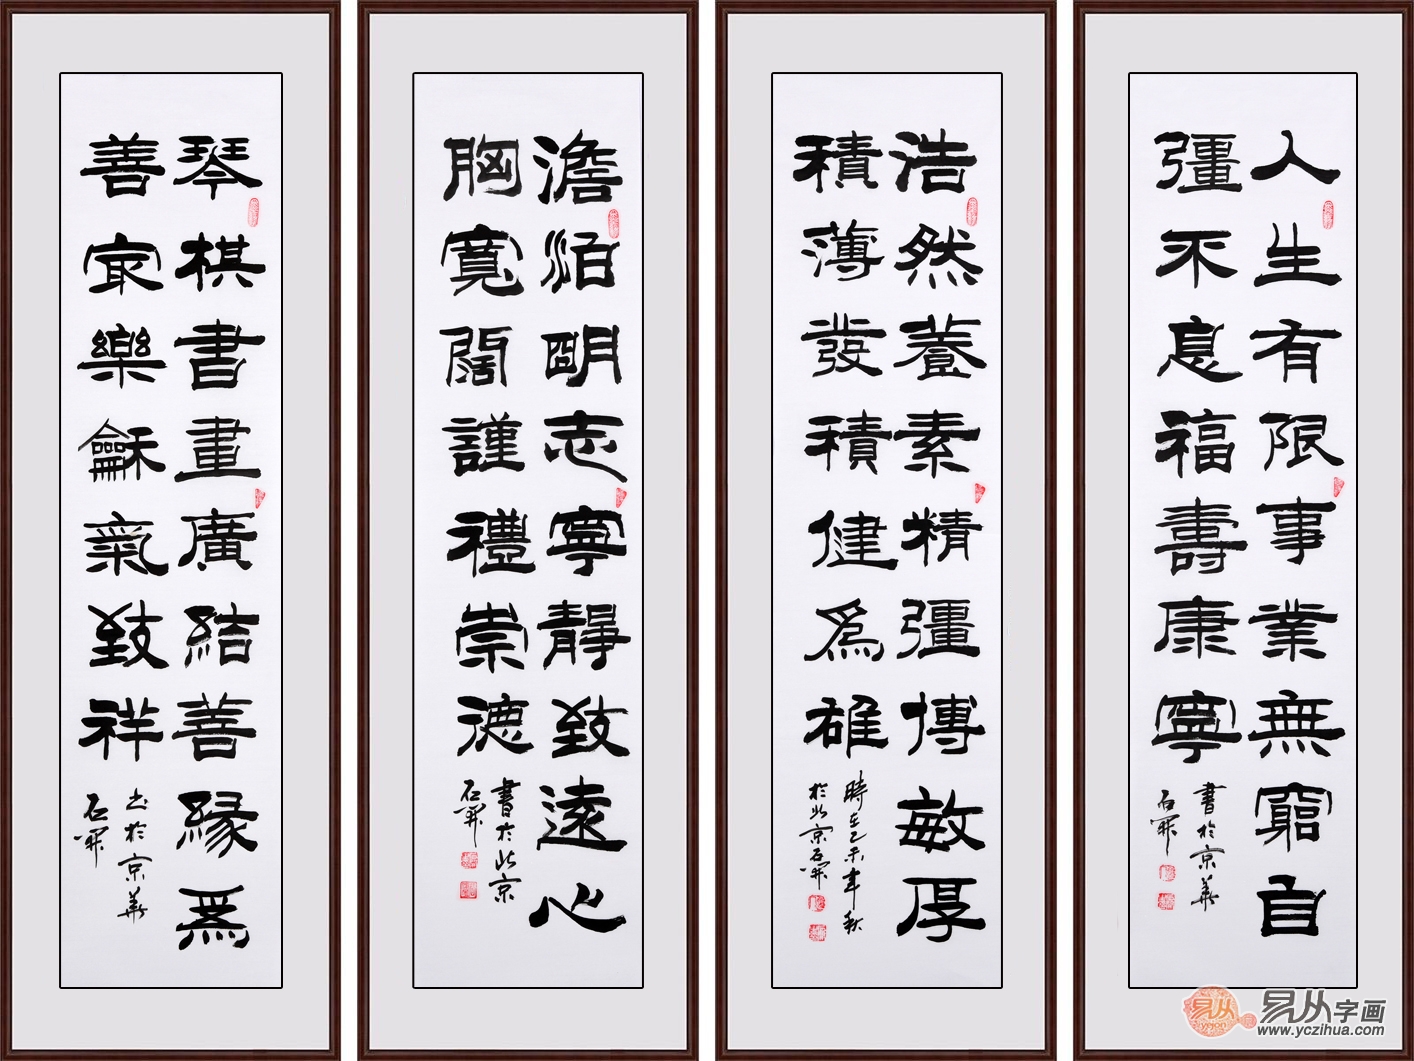 人生有限事業無窮自
彊不息福壽康寧
書於京華
石開
浩然養素精彊博敏厚
積薄發積健爲雄
時在乙未年秋
於北京石開
澹泊明志寧靜致遠心
胸寬闊謹禮崇德
書於北京
石開
琴棋書畫廣結善緣爲
善冣樂龢氣致祥
书於京華
石開
易从
ycjon
易从字画
www.yczihua.com